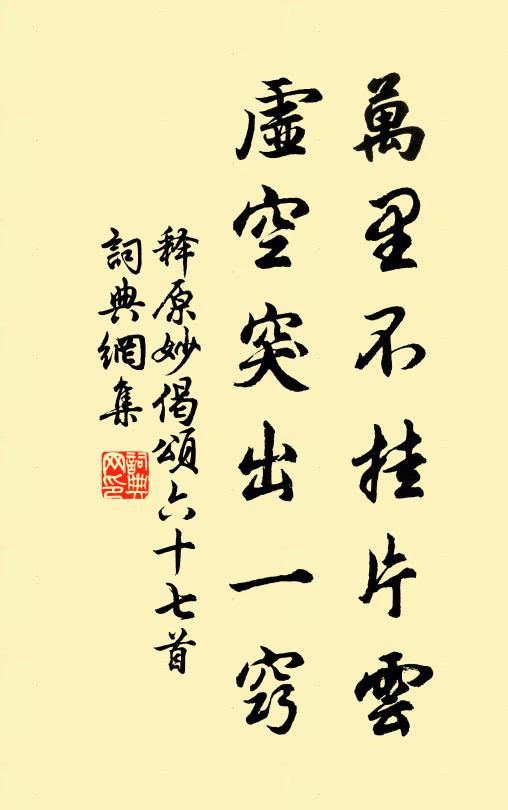 萬里不挂片雲
虛空突出一窍
释原妙偈頌六十七首
詞典網集
詞典网印